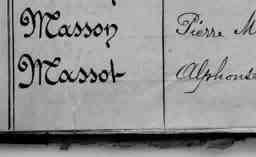 Masson Pierre M
Massot Alphonse